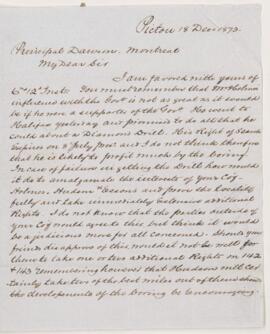 Pictou 18 Dec 1873.
Principal Dawson. Montreal
My Dear Sir
I am favored with yours of
6th 12th Insts. You must remember that Mr Holmes
influence with the Govt is not as great as it would
be if he were a supporter of the Govt. He went to
Halifax yesterday and promised to do all that he
could about a Diamond Drill. His Right of Search
Expires on 8 July and I do not think therefore
that he is likely to profit much by the boring
In case of failure in getting the Drill how would
it do to amalgamate the interests of your Coy
Holmes, Hudson & prove the locality
fully and take immediately Extensive additional
Rights. I do not know that the parties outside of
your Coy would agree to this but think it would
be a judicious move for all concerned. Should your
friends disapprove of this would it not be well for
them to take one or two additional Rights on 142
& 143 remembering however that Hudson will Cer
tainly take two of the best miles out of them should
the developements of the Boring be Encouraging